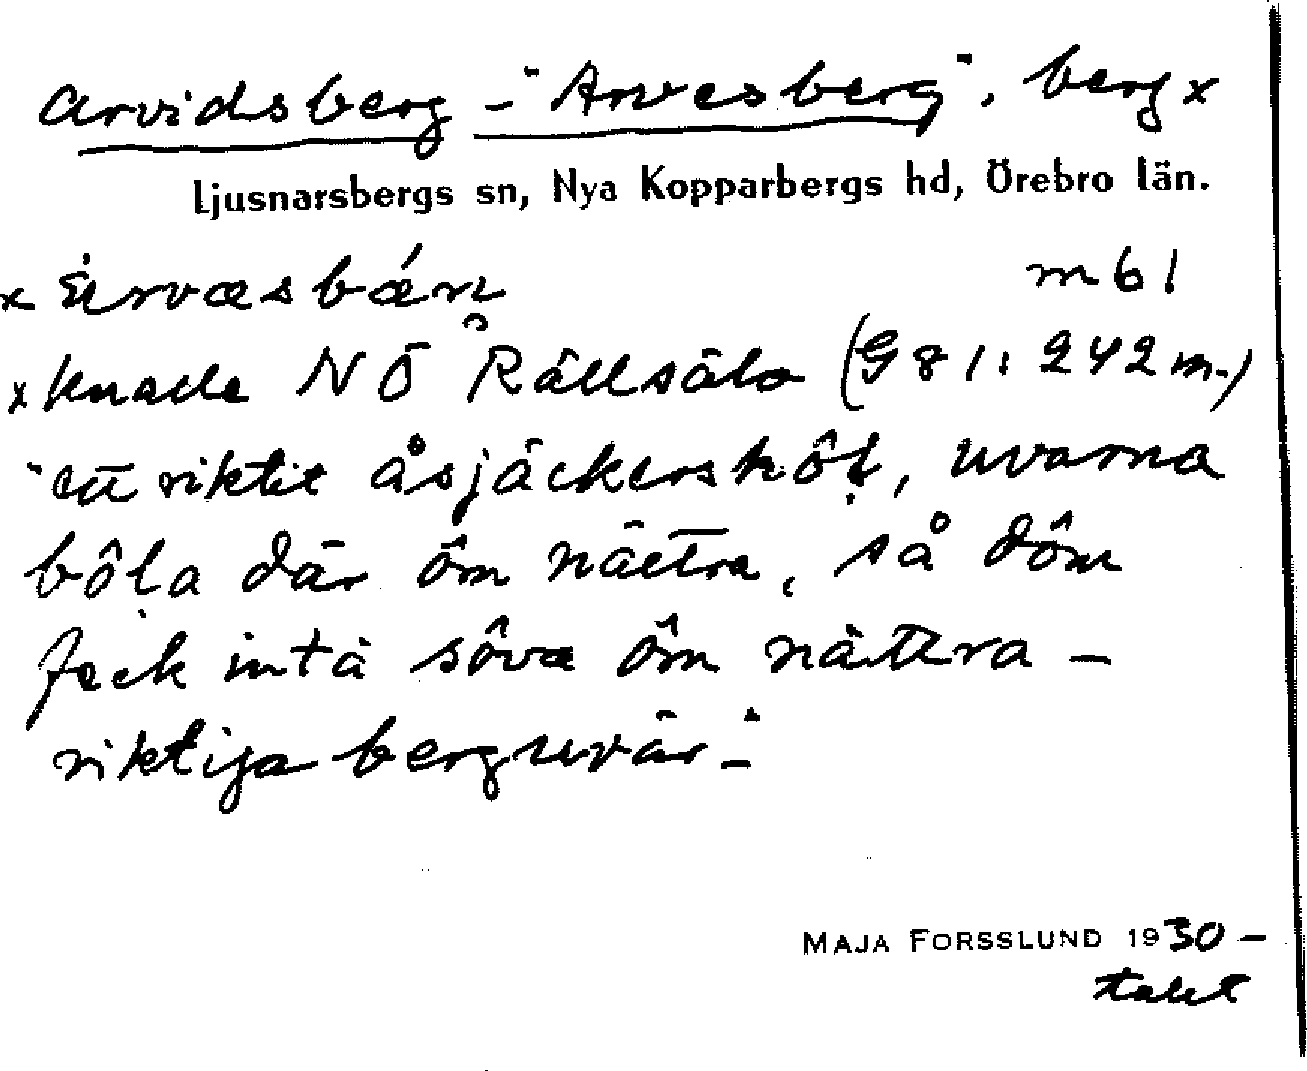 Arvidsberg - "Arvesberg", berg x
Ljusnarsbergs sn, Nya Kopparbergs hd, Örebro län.
x m61
x NÖ Rällsälv (G81: 242 m.)
"ett riktit åsjäckershôl, uvarna
bôla där ôm nättra, så dôm
feck intä sôva ôm nättra -
riktiga berguvär -"
MAJA FORSSLUND 1930-
talet